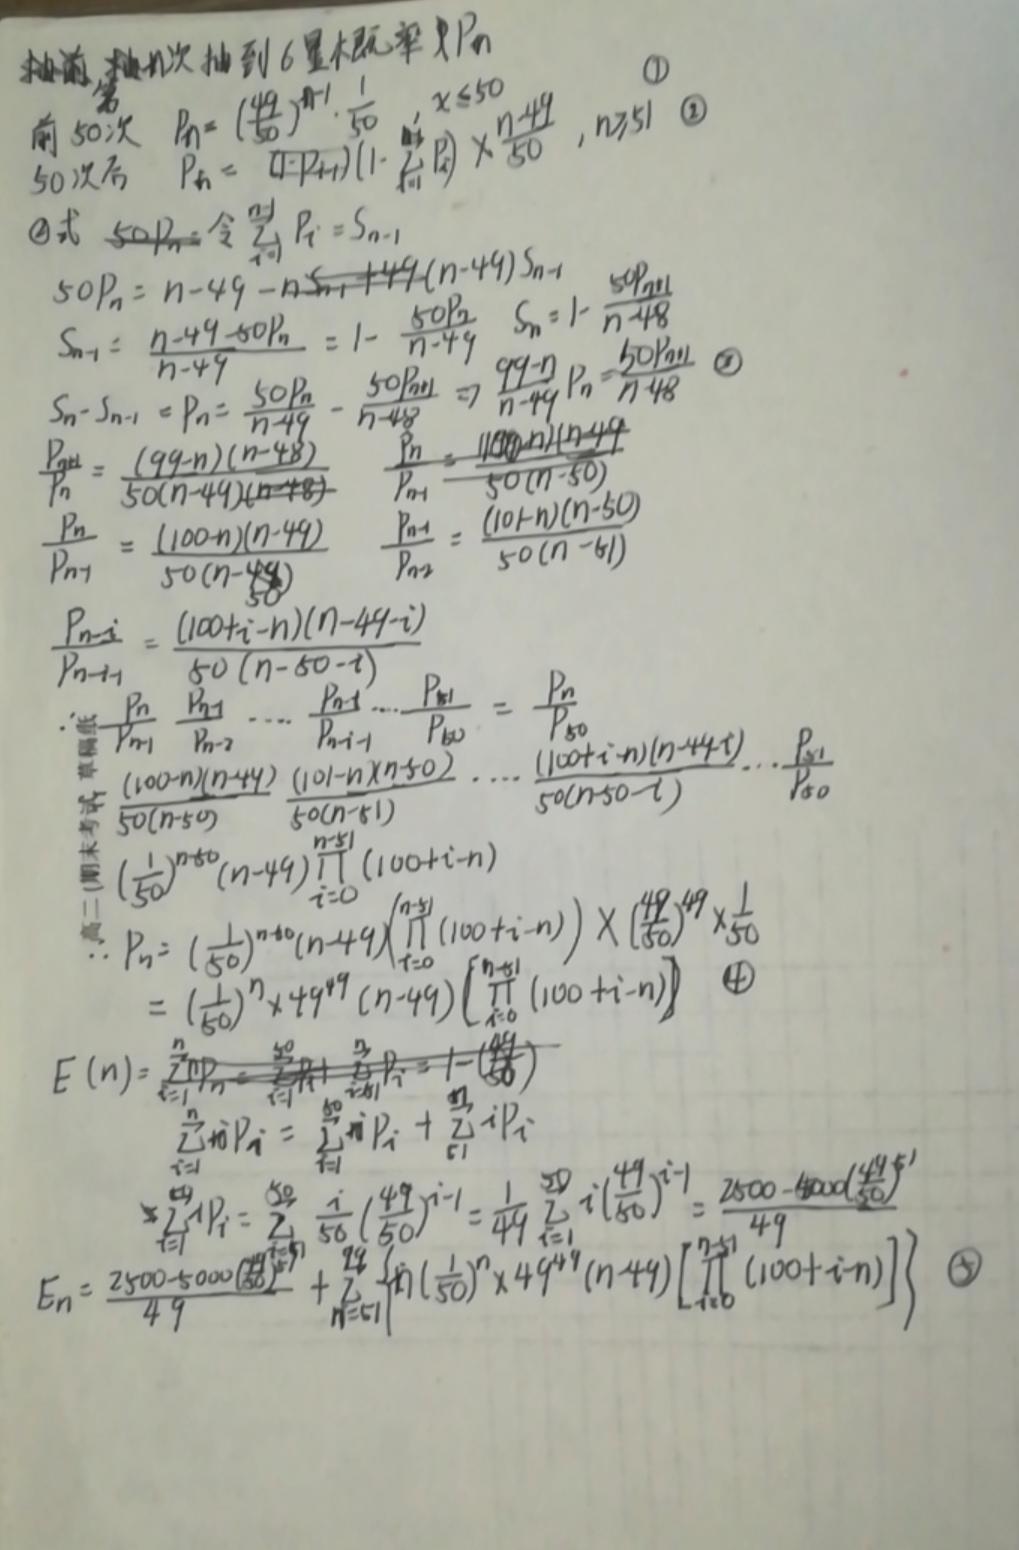 第n次抽到6星概率为Pn
前50次 Pn = (49/50)^{n-1} · 1/50, x≤50 ①
50次后 Pn = (1 - Σ_{i=1}^{n-1} Pi) × (n-49)/50, n≥51 ②
②式 令 Σ_{i=1}^{n-1} Pi = S_{n-1}
50Pn = n-49 - (n-49)S_{n-1}
S_{n-1} = (n-49-50Pn)/(n-49) = 1 - 50Pn/(n-49) Sn = 1 - 50P_{n+1}/(n-48)
Sn - S_{n-1} = Pn = 50Pn/(n-49) - 50P_{n+1}/(n-48) ⇒ (99-n)/(n-49) Pn = 50P_{n+1}/(n-48) ③
P_{n+1}/Pn = (99-n)(n-48)/50(n-49)
Pn/P_{n-1} = (100-n)(n-49)/50(n-50) P_{n-1}/P_{n-2} = (101-n)(n-50)/50(n-51)
P_{n-i}/P_{n-i-1} = (100+i-n)(n-49-i)/50(n-50-i)
∴ Pn/P_{n-1} P_{n-1}/P_{n-2} ···· P_{n-i}/P_{n-i-1} ··· P51/P50 = Pn/P50
(100-n)(n-49)/50(n-50) (101-n)(n-50)/50(n-51) ···· (100+i-n)(n-49-i)/50(n-50-i) ··· P51/P50
(1/50)^{n-50} (n-49) Π_{i=0}^{n-51} (100+i-n)
∴ Pn = (1/50)^{n-50} (n-49) (Π_{i=0}^{n-51} (100+i-n)) × (49/50)^{49} × 1/50
= (1/50)^n × 49^{49} (n-49) [Π_{i=0}^{n-51} (100+i-n)] ④
E(n) =
Σ_{i=1}^{n} iPi = Σ_{i=1}^{50} iPi + Σ_{51}^{n} iPi
Σ_{i=1}^{50} iPi = Σ_{i=1}^{50} i/50 (49/50)^{i-1} = 1/49 Σ_{i=1}^{50} i(49/50)^{i-1} = (2500-5000(49/50)^{51})/49
En = (2500-5000(49/50)^{51})/49 + Σ_{n=51}^{99} {n(1/50)^n × 49^{49} (n-49) [Π_{i=0}^{n-51} (100+i-n)]} ⑤
高二(期末考试 草稿纸